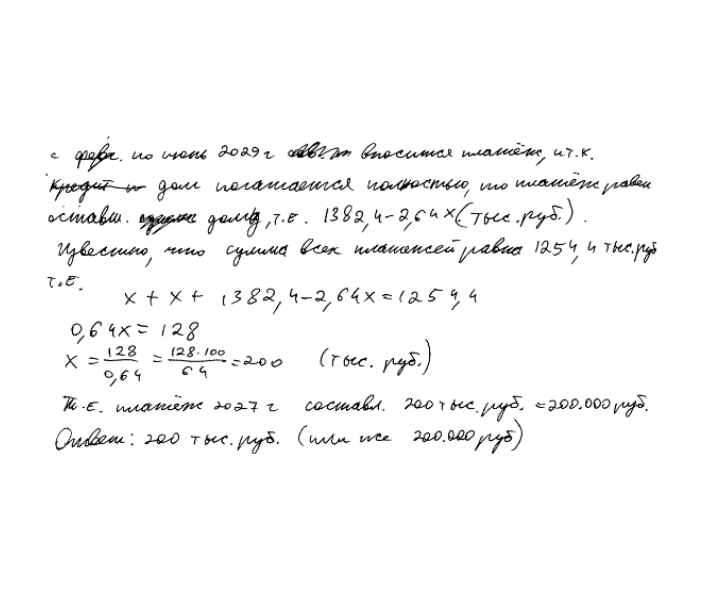 с февр. по июнь 2029 г вносится платёж, и т.к.
долг погашается полностью, то платёж равен
оставш. долгу, т.е. 1382,4-2,64x (тыс.руб.).
Известно, что сумма всех платежей равна 1254,4 тыс.руб
т.е.
x + x + 1382,4-2,64x = 1254,4
0,64x = 128
x = 128/0,64 = 128·100/64 = 200 (тыс. руб.)
Т.е. платёж 2027 г составл. 200 тыс. руб. = 200.000 руб.
Ответ: 200 тыс. руб. (или же 200.000 руб)